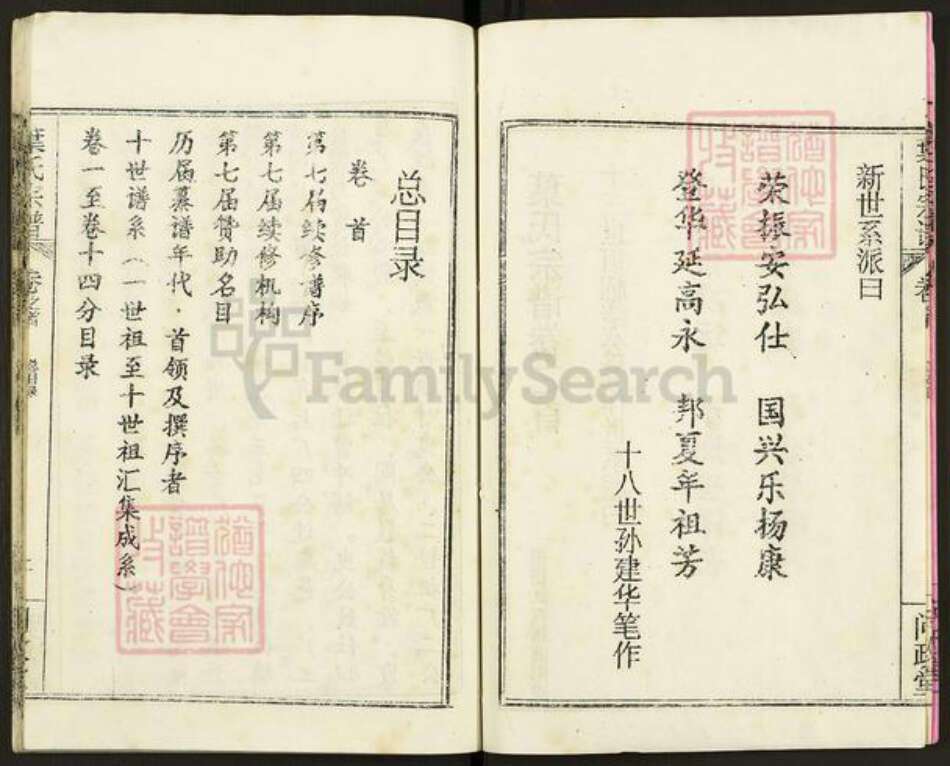 新世系派曰
荣振安弘仕 国兴乐杨康
登华延高永 邦夏年祖芳
十八世孙建华笔作
尚政堂
总目录
卷首
第七届续修谱序
第七届续修机构
第七届赞助名目
历届纂谱年代·首领及撰序者
十世谱系(一世祖至十世祖汇集成系)
卷一至卷十四分目录
葉氏宗譜 卷之首
FamilySearch